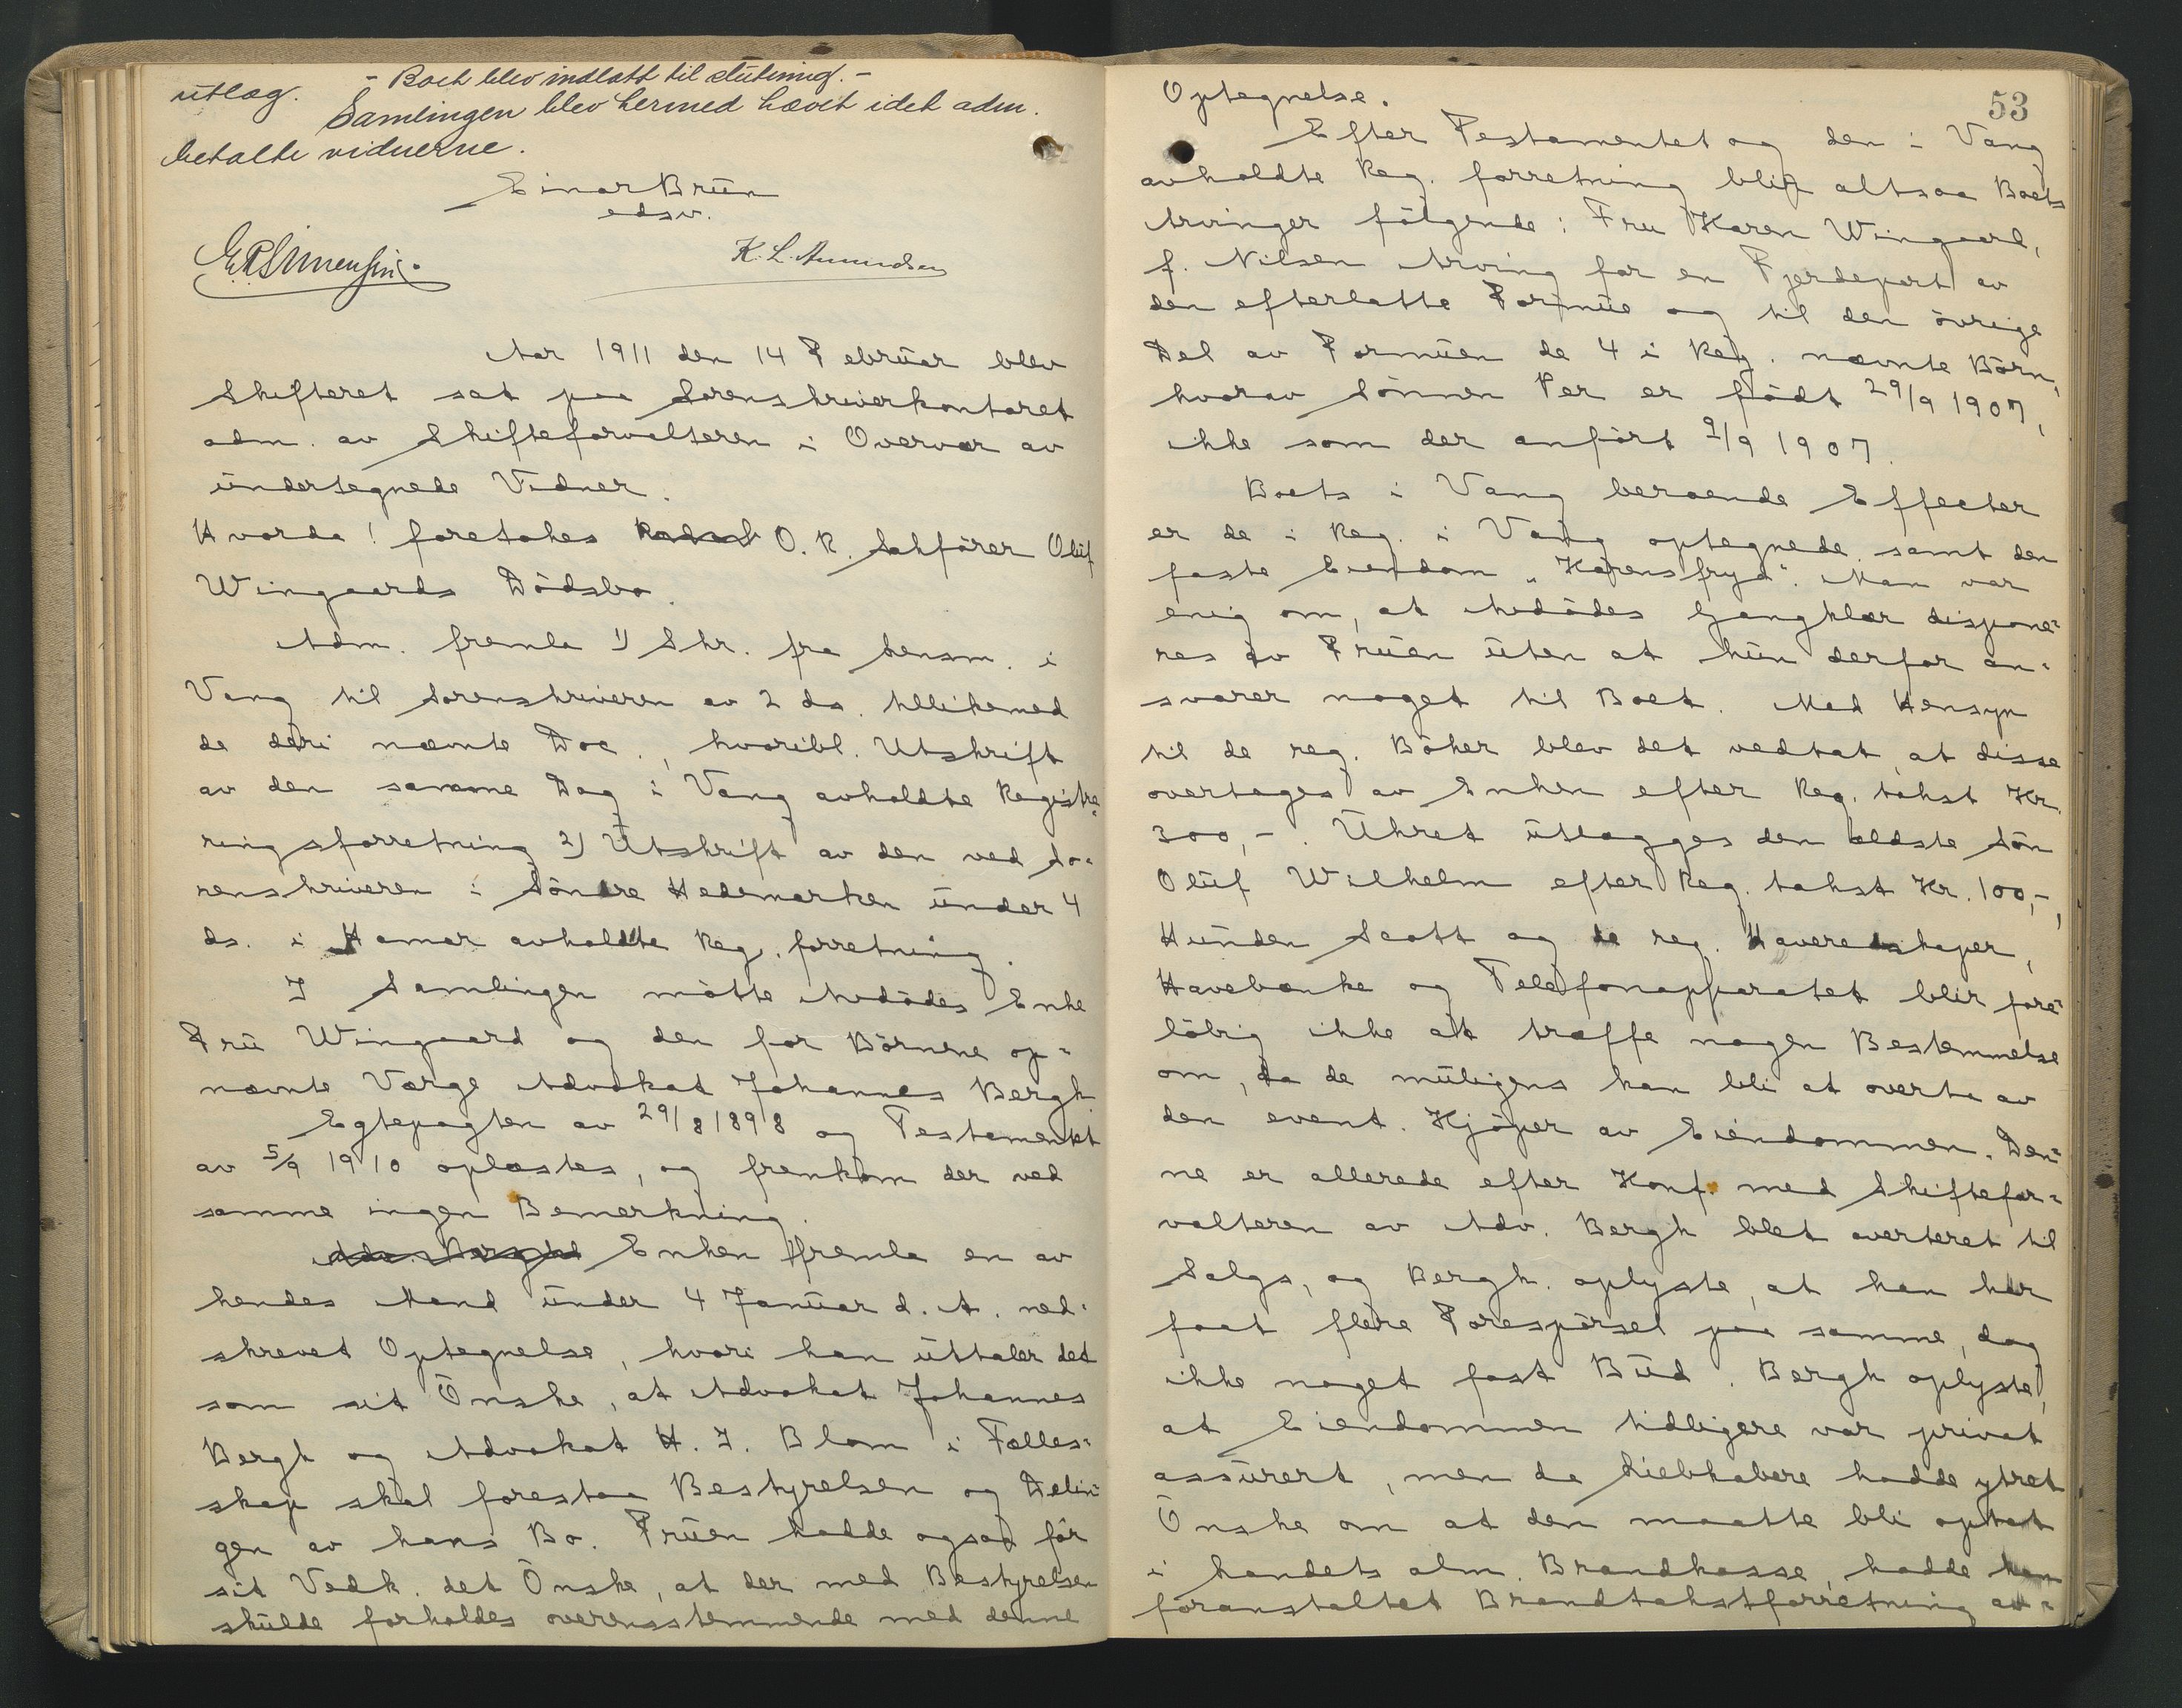 - Boet blev indlatt til slutning. -
utlæg. Samlingen blev hermed hævet idet adm.
betalte vidnerne.
Einar Bruun
edsv.
K. L. Amundsen
Aar 1911 den 14 Februar blev
Skifteret sat paa Sorenskriverkontoret
adm. av Skifteforvalteren i Overvær av
undertegnede Vidner.
Hvorda! foretokes O. R. Sakförer Oluf
Wingaards Dödsbo.
Adm. fremla 1) Skr. fra Lensm. i
Vang til Sorenskriveren av 2 ds. tillikemed
de deri nævnte Doc., hvoribl. Utskrift
av den samme Dag i Vang avholdte Registre-
ringsforretning 2) Utskrift av den ved So-
renskriveren i Söndre Hedemarken under 4
ds. i Hamar avholdte Reg. forretning.
I Samlingen mötte Avdödes Enke
Fru Wingaard og den for Börnene op-
nævnte Værge Advokat Johannes Bergh.
Egtepagten av 29/8 1898 og Testamentet
av 5/9 1910 oplæstes, og fremkom der ved
samme ingen Bemerkning.
Enken fremla en av
hendes Mand under 4 Januar d. A. ned-
skrevet Optegnelse, hvori han uttaler det
som sit Önske, at Advokat Johannes
Bergh og Advokat H. J. Blom i Fælles-
skap skal forestaa Bestyrelsen og Delin-
gen av hans Bo. Fruen hadde ogsaa for
sit Vedk. det Önske, at der med Bestyrelsen
skulde forholdes overensstemmende med denne
53
Optegnelse.
Efter Testamentet og den i Vang
avholdte Reg. forretning blir altsaa Boets
Arvinger fölgende: Fru Karen Wingaard,
f. Nilsen Arving for en Fjerdepart av
den efterlatte Formue og til den övrige
Del av Formuen de 4 i Reg. nævnte Börn,
hvorav Sönnen Per er födt 29/9 1907,
ikke som der anfört 9/9 1907.
Boets i Vang beroende Effecter
er de i Reg. i Vang optegnede samt den
faste Eiendom „Karensfryd“. Man var
enig om, at Avdödes Gangklær dispone-
res av Fruen uten at hun derfor an-
svarer noget til Boet. Med Hensyn
til de reg. Böker blev det vedtat, at disse
overtages av Enken efter Reg. takst Kr.
300,-. Uhret utlægges den ældste Sön
Oluf Wilhelm efter Reg. takst Kr. 100,-,
Hunden Scott og de reg. Haveredskaper,
Havebænke og Telefonapparatet blir fore-
löbig ikke at træffe nogen Bestemmelse
om, da de muligens kan bli at overta av
den event. Kjöper av Eiendommen. Den-
ne er allerede efter Konf. med Skiftefor-
valteren av Adv. Bergh blet averteret til
Salgs, og Bergh oplyste, at han har
faat flere Forespörsel paa samme, dog
ikke noget fast Bud. Bergh oplyste,
at Eiendommen tidligere var privat
assurert, men da Liebhabere hadde ytret
Önske om at den maatte bli optat
i Landets alm. Brandkasse, hadde han
foranstaltet Brandtakstforretning av-